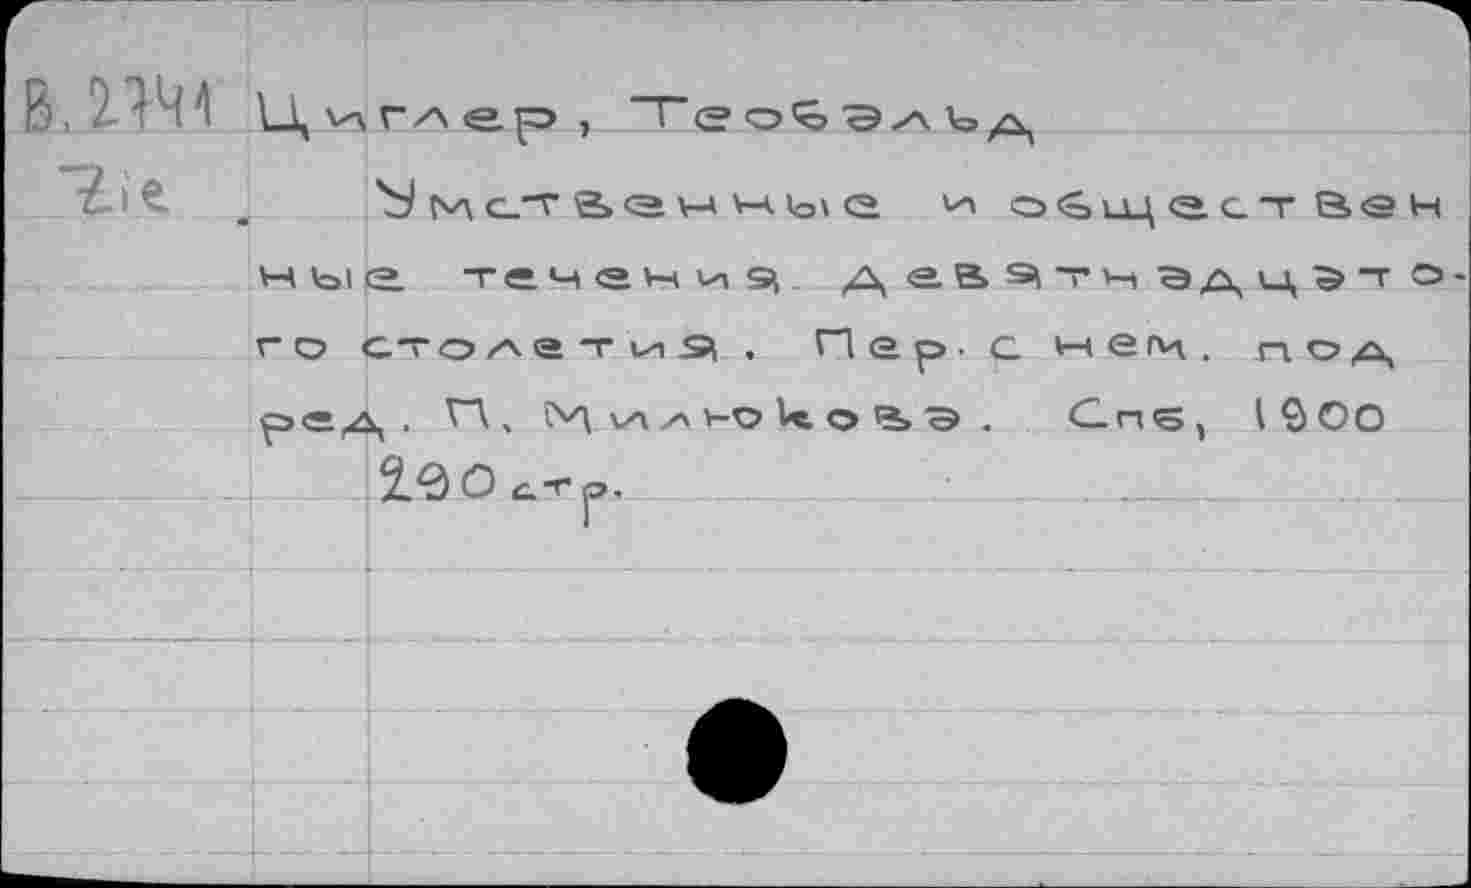 В.2741 Циглер, Теобальд
Zie Умственные и обществен
ные течения девятнадцато-
го столетия. Пер. с нем. под
ред. П. Милюкова. Спб, 1900
290 стр.